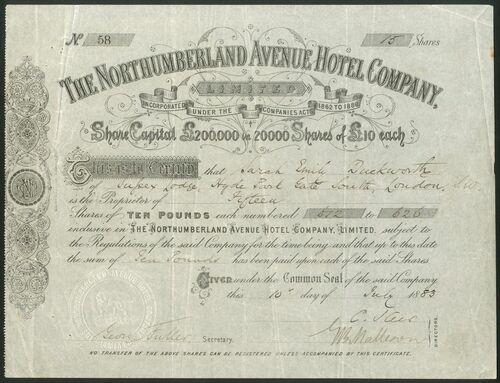 No. 58 15 Shares
THE NORTHUMBERLAND AVENUE HOTEL COMPANY,
LIMITED
INCORPORATED UNDER THE COMPANIES ACTS 1862 TO 1880
Share Capital £200,000 in 20000 Shares of £10 each
This is to Certify that Sarah Emily Duckworth
of Lodge, Hyde Park Gate South, London, S.W.
is the Proprietor of Fifteen
Shares of TEN POUNDS each numbered 612 to 626
inclusive in THE NORTHUMBERLAND AVENUE HOTEL COMPANY, LIMITED. subject to
the Regulations of the said Company for the time being and that up to this date
the sum of Ten Pounds has been paid upon each of the said Shares
GIVEN under the Common Seal of the said Company
this 10th day of July 1883
George Fuller Secretary.
DIRECTORS.
NO TRANSFER OF THE ABOVE SHARES CAN BE REGISTERED UNLESS ACCOMPANIED BY THIS CERTIFICATE.